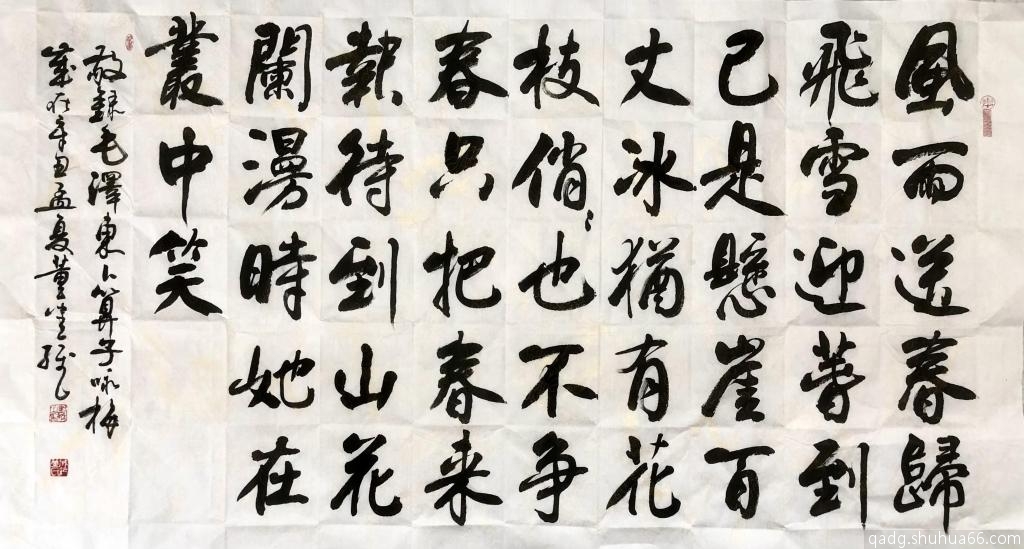 風雨送春歸
飛雪迎萅到
已是懸崖百
丈冰猶有花
枝俏〻也不争
春只把春来
報待到山花
闌漫時她在
叢中笑
敬録毛澤東卜算子咏梅
歲在辛丑孟夏董
qadg.shuhua66.com